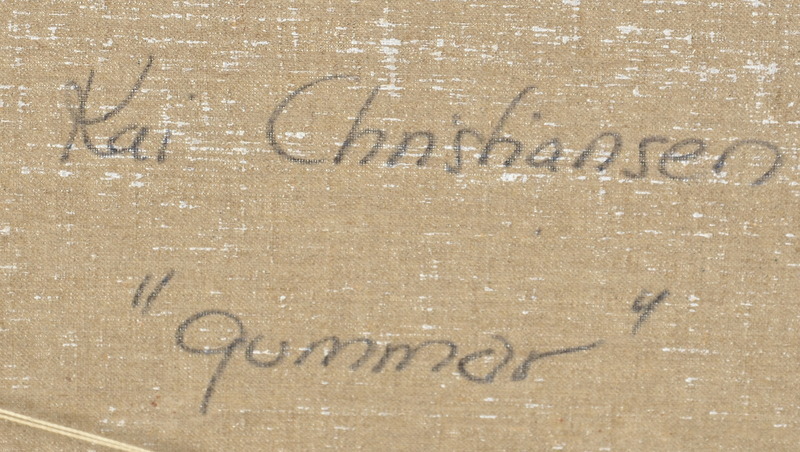 Kai Christiansen
"Qummor"